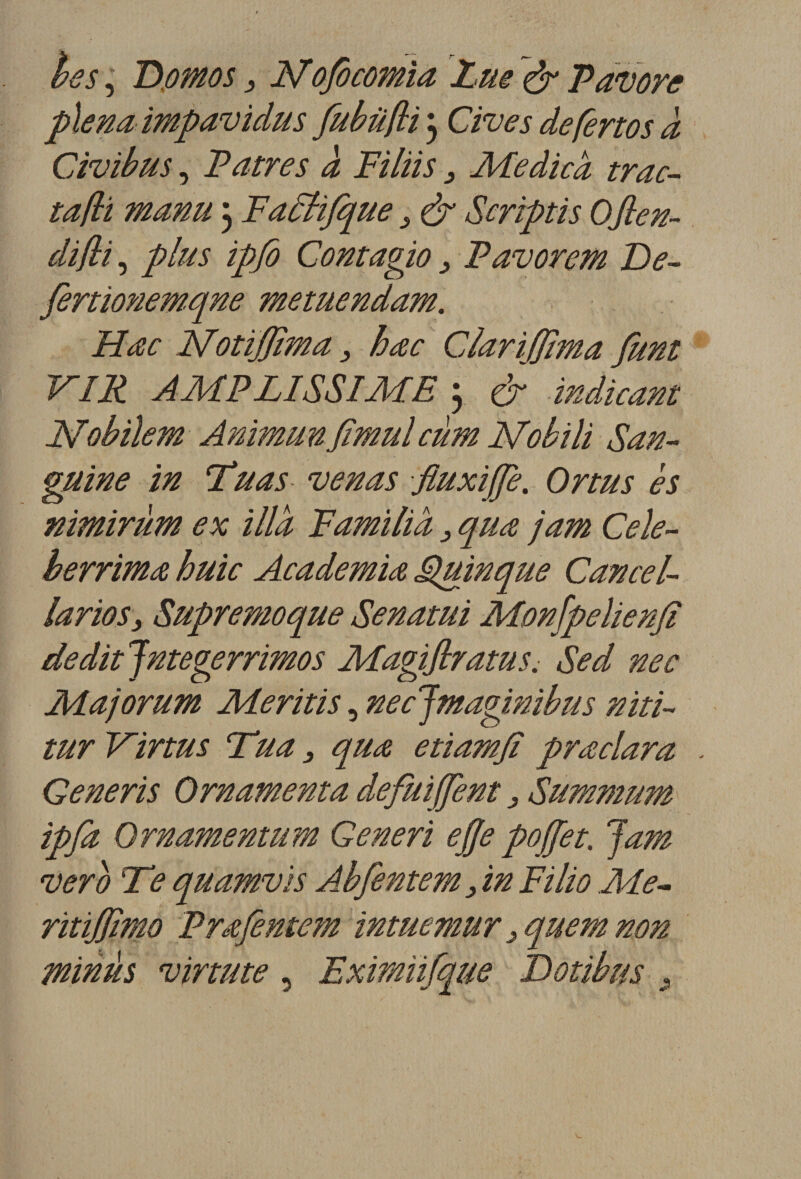 bes, Domos, Noſocomia Lue & Pavore
plena impavidus ſubiiſti; Cives deſertos à
Civibus, Patres à Filiis, Medicâ trac-
taſti manu; Factiſque, & Scriptis Oſten-
diſti, plus ipſo Contagio, Pavorem De-
ſertionemqne metuendam.
Hæc Notiſſima, hæc Clariſſima ſunt
VIR AMPLISSIME; & indicant
Nobilem Animun ſimul cùm Nobili San-
guine in Tuas venas fluxiſſe. Ortus és
nimirùm ex illâ Familiâ, quæ jam Cele-
berrimæ huic Academiæ Quinque Cancel-
larios, Supremoque Senatui Monſpelienſi
dedit Jntegerrimos Magiſtratus. Sed nec
Majorum Meritis, nec Jmaginibus niti-
tur Virtus Tua, quæ etiamſi præclara
Generis Ornamenta defuiſſent, Summum
ipſa Ornamentum Generi eſſe poſſet. Jam
verò Te quamvis Abſentem, in Filio Me-
ritiſſimo Præſentem intuemur, quem non
minùs virtute, Eximiiſque Dotibus,